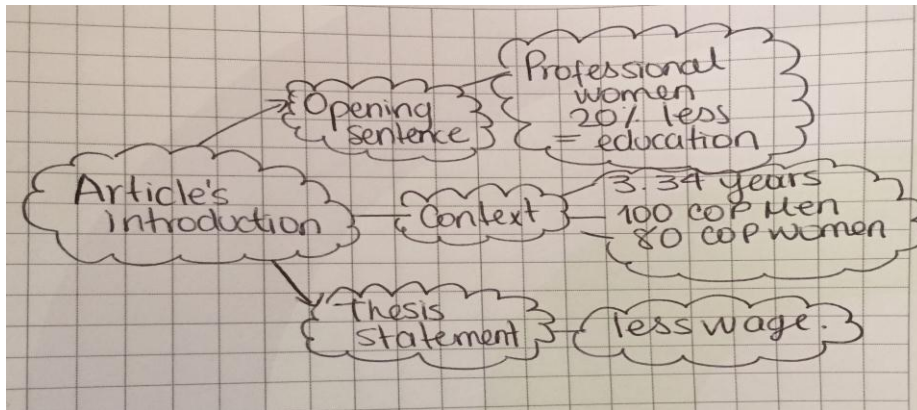 Article's
introduction
Opening
sentence
Professional
women
20% less
= education
Context
3.34 years
100 COP Men
80 COP women
Thesis
statement
less wage.